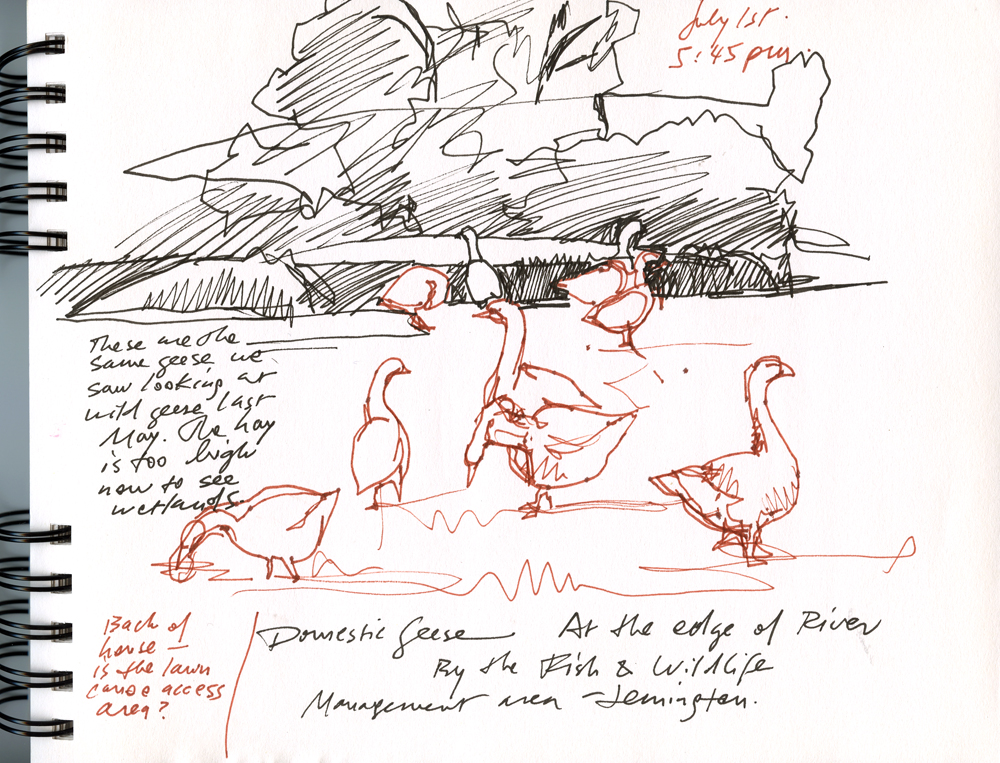 July 1st.
5:45 pm.
These are the
same geese we
saw looking at
wild geese last
May. The hay
is too high
now to see
wetlands.
Back of
house —
is the lawn
canoe access
area?
Domestic Geese At the edge of River
By the Fish & Wildlife
Management area - Lemington.